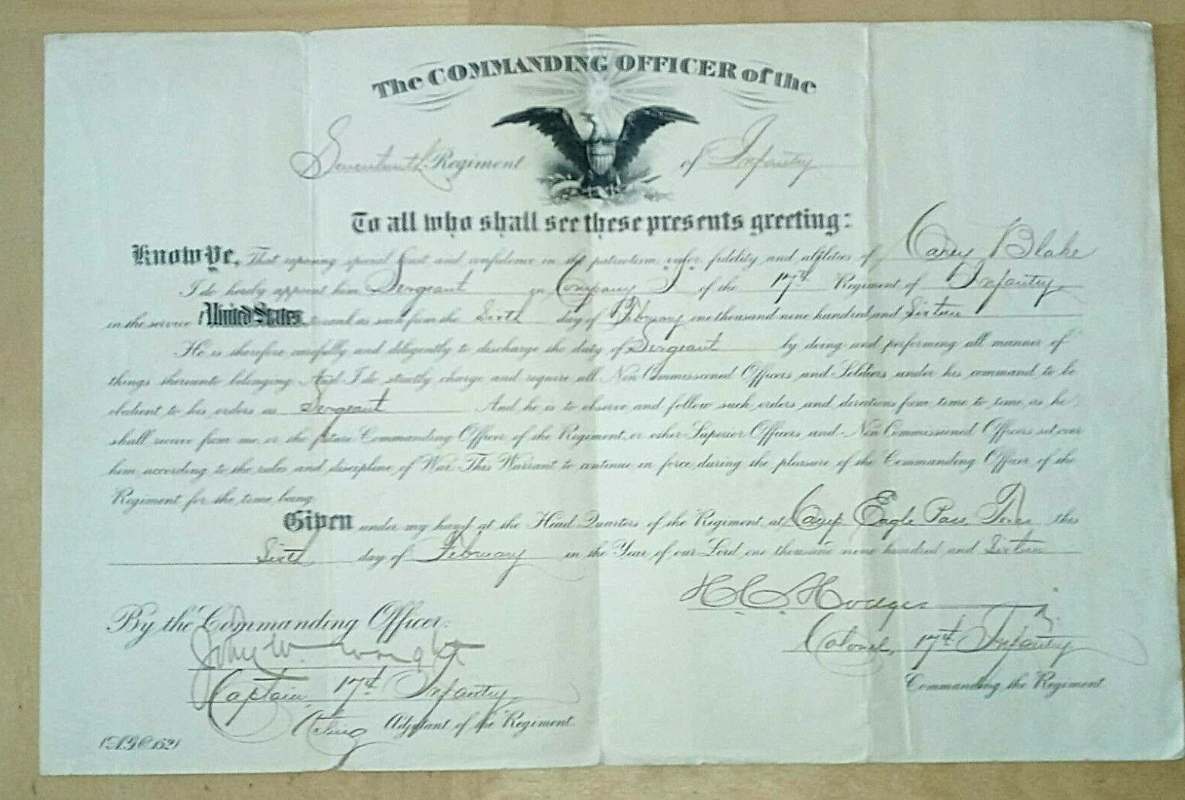 The COMMANDING OFFICER of the
Seventeenth Regiment of Infantry
To all who shall see these presents greeting:
Know Ye, That reposing special trust and confidence in the patriotism, valor, fidelity and abilities of Carey Blake
I do hereby appoint him Sergeant in Company I of the 17th Regiment of Infantry
in the service United States to rank as such from the Sixth day of February one thousand nine hundred and Sixteen
He is therefore carefully and diligently to discharge the duty of Sergeant by doing and performing all manner of
things thereunto belonging. And I do strictly charge and require all Non Commissioned Officers and Soldiers under his command to be
obedient to his orders as Sergeant And he is to observe and follow such orders and directions from time to time, as he
shall receive from me, or the future Commanding Officer of the Regiment, or other Superior Officers and Non Commissioned Officers set over
him, according to the rules and discipline of War. This Warrant to continue in force during the pleasure of the Commanding Officer of the
Regiment for the time being.
Given under my hand at the Head Quarters of the Regiment at Camp Eagle Pass, Texas this
Sixth day of February in the Year of our Lord one thousand nine hundred and Sixteen
H C Hodges
By the Commanding Officer:
John W. Wright
Colonel, 17th Infantry
Captain, 17th Infantry
Commanding the Regiment
Acting Adjutant of the Regiment
(A.G.O. 152)